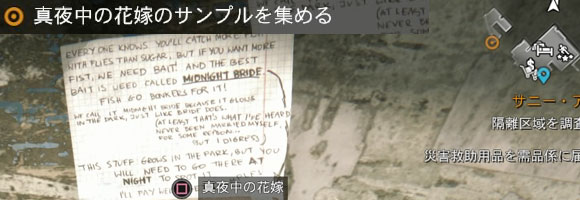 真夜中の花嫁のサンプルを集める
EVERY ONE KNOWS YOU'LL CATCH MORE
WITH FLIES THAN SUGAR, BUT IF YOU WANT MORE
FIST, WE NEED BAIT! AND THE BEST
BAIT IS WEED CALLED MIDNIGHT BRIDE
FISH GO BONKERS FOR IT!
WE CALL IT MIDNIGHT BRIDE BECAUSE IT GLOWS
IN THE DARK, JUST LIKE BRIDE DOES.
(AT LEAST THAT'S WHAT I'VE HEARD
NEVER BEEN MARRIED MYSELF,
FOR SOME REASON...
BUT I DIGRESS)
THIS STUFF GROWS IN THE PARK, BUT YOU
WILL NEED TO GO THERE AT
NIGHT TO SPOT IT
I'LL PAY
真夜中の花嫁
BUT IF
NEED
(AT LEAST
NEVER
サニー・ア
隔離区域を調査
災害救助用品を需品係に届